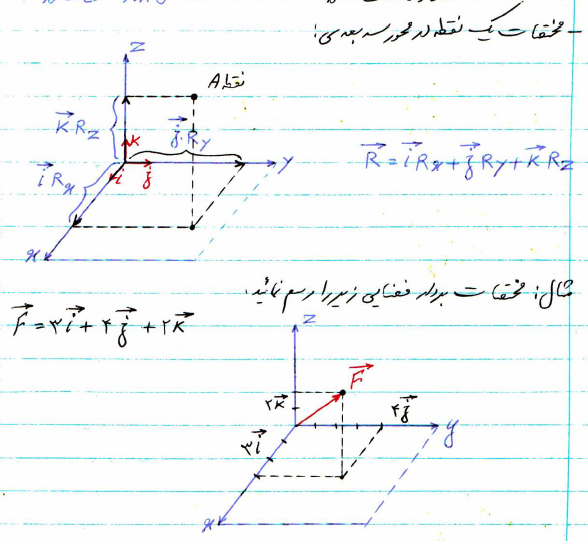 - مختصات یک نقطه در محور سه بعدی:
Z
نقطه A
K R_Z
j R_y
K
i R_x
i
j
y
x
R = i R_x + j R_y + K R_Z
مثال: مختصات بردار فضایی زیر را رسم نمائید.
F = ۳i + ۴j + ۲K
Z
F
۲K
۴j
۳i
y
x